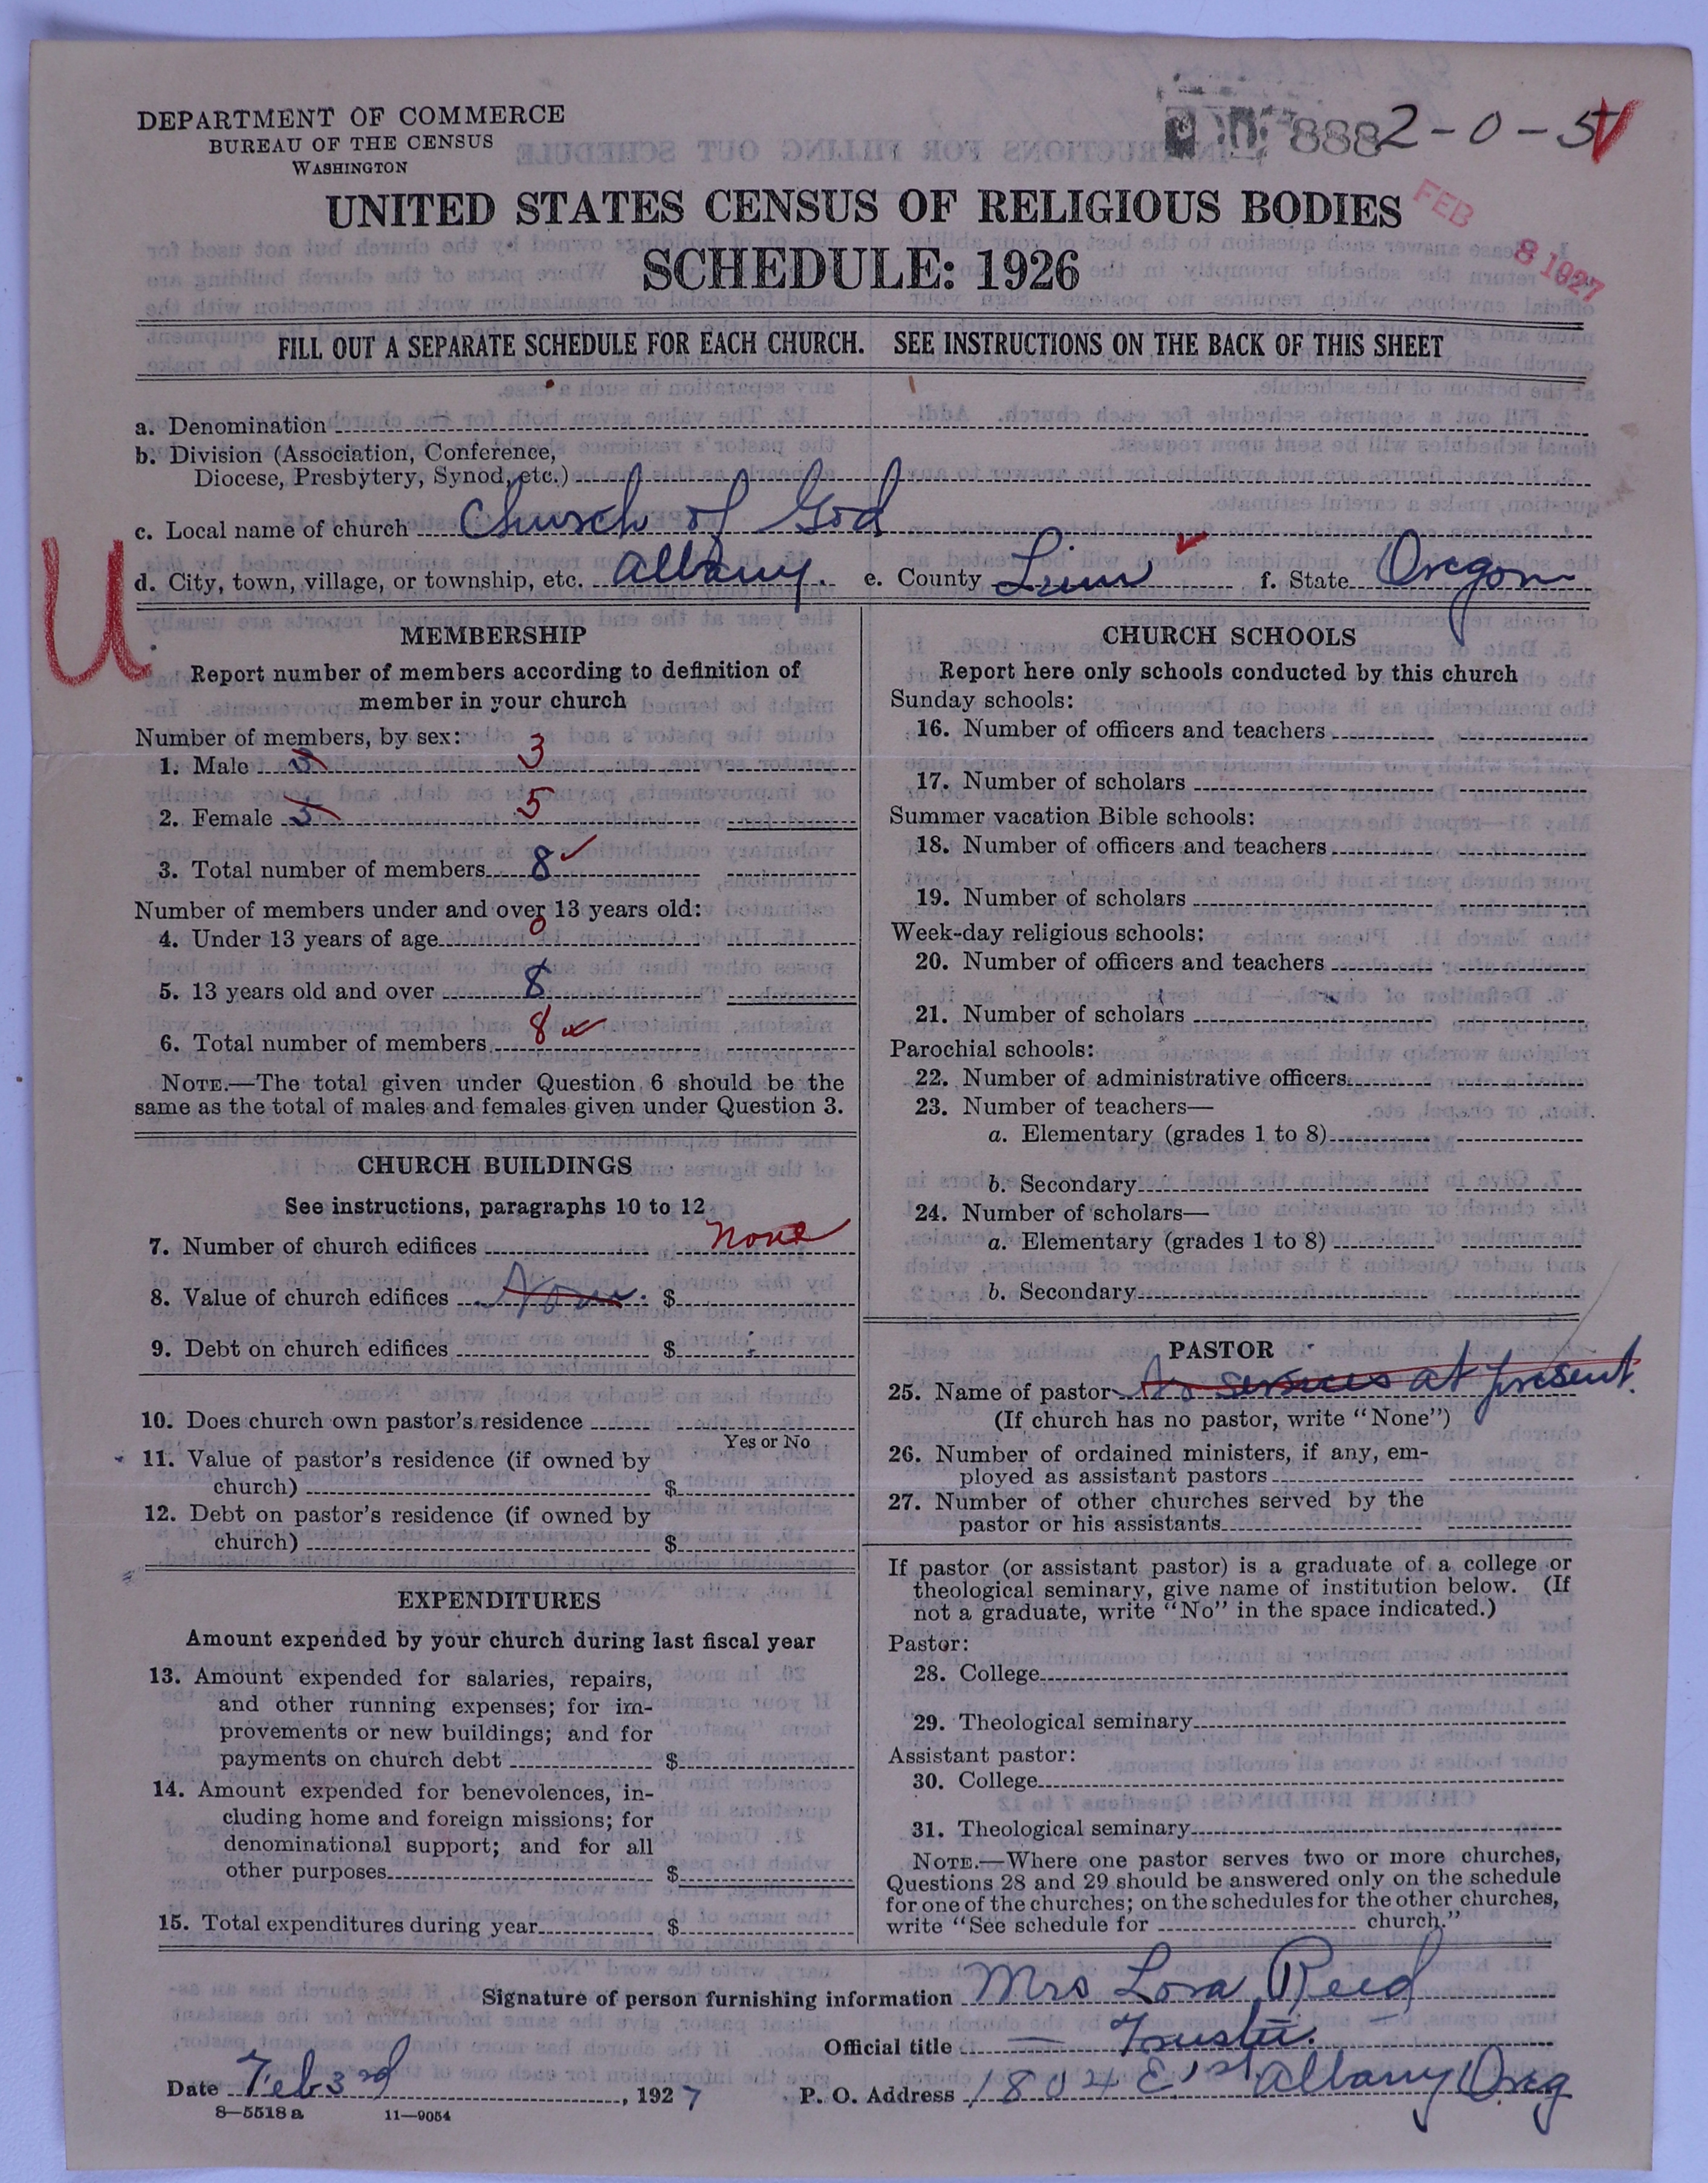 DEPARTMENT OF COMMERCE
BUREAU OF THE CENSUS
WASHINGTON
888 2-0-5
UNITED STATES CENSUS OF RELIGIOUS BODIES
SCHEDULE: 1926
FEB 8 1927
FILL OUT A SEPARATE SCHEDULE FOR EACH CHURCH. SEE INSTRUCTIONS ON THE BACK OF THIS SHEET
a. Denomination
b. Division (Association, Conference,
Diocese, Presbytery, Synod, etc.)
c. Local name of church Church of God
d. City, town, village, or township, etc. Albany. e. County Linn f. State Oregon
U
MEMBERSHIP
Report number of members according to definition of
member in your church
Number of members, by sex:
1. Male 3 3
2. Female 5 5
3. Total number of members 8
Number of members under and over 13 years old:
4. Under 13 years of age 0
5. 13 years old and over 8
6. Total number of members 8
NOTE.—The total given under Question 6 should be the
same as the total of males and females given under Question 3.
CHURCH BUILDINGS
See instructions, paragraphs 10 to 12
7. Number of church edifices none
8. Value of church edifices None. $
9. Debt on church edifices $
10. Does church own pastor's residence
Yes or No
11. Value of pastor's residence (if owned by
church) $
12. Debt on pastor's residence (if owned by
church) $
EXPENDITURES
Amount expended by your church during last fiscal year
13. Amount expended for salaries, repairs,
and other running expenses; for im-
provements or new buildings; and for
payments on church debt $
14. Amount expended for benevolences, in-
cluding home and foreign missions; for
denominational support; and for all
other purposes $
15. Total expenditures during year $
CHURCH SCHOOLS
Report here only schools conducted by this church
Sunday schools:
16. Number of officers and teachers
17. Number of scholars
Summer vacation Bible schools:
18. Number of officers and teachers
19. Number of scholars
Week-day religious schools:
20. Number of officers and teachers
21. Number of scholars
Parochial schools:
22. Number of administrative officers
23. Number of teachers—
a. Elementary (grades 1 to 8)
b. Secondary
24. Number of scholars—
a. Elementary (grades 1 to 8)
b. Secondary
PASTOR
25. Name of pastor No services at present.
(If church has no pastor, write "None")
26. Number of ordained ministers, if any, em-
ployed as assistant pastors
27. Number of other churches served by the
pastor or his assistants
If pastor (or assistant pastor) is a graduate of a college or
theological seminary, give name of institution below. (If
not a graduate, write "No" in the space indicated.)
Pastor:
28. College
29. Theological seminary
Assistant pastor:
30. College
31. Theological seminary
NOTE.—Where one pastor serves two or more churches,
Questions 28 and 29 should be answered only on the schedule
for one of the churches; on the schedules for the other churches,
write "See schedule for church."
Signature of person furnishing information Mrs Lora Reed
Official title Trustee.
Date Feb 3rd, 1927 P. O. Address 1804 E 1st Albany Oreg
8—5518 a 11—9054